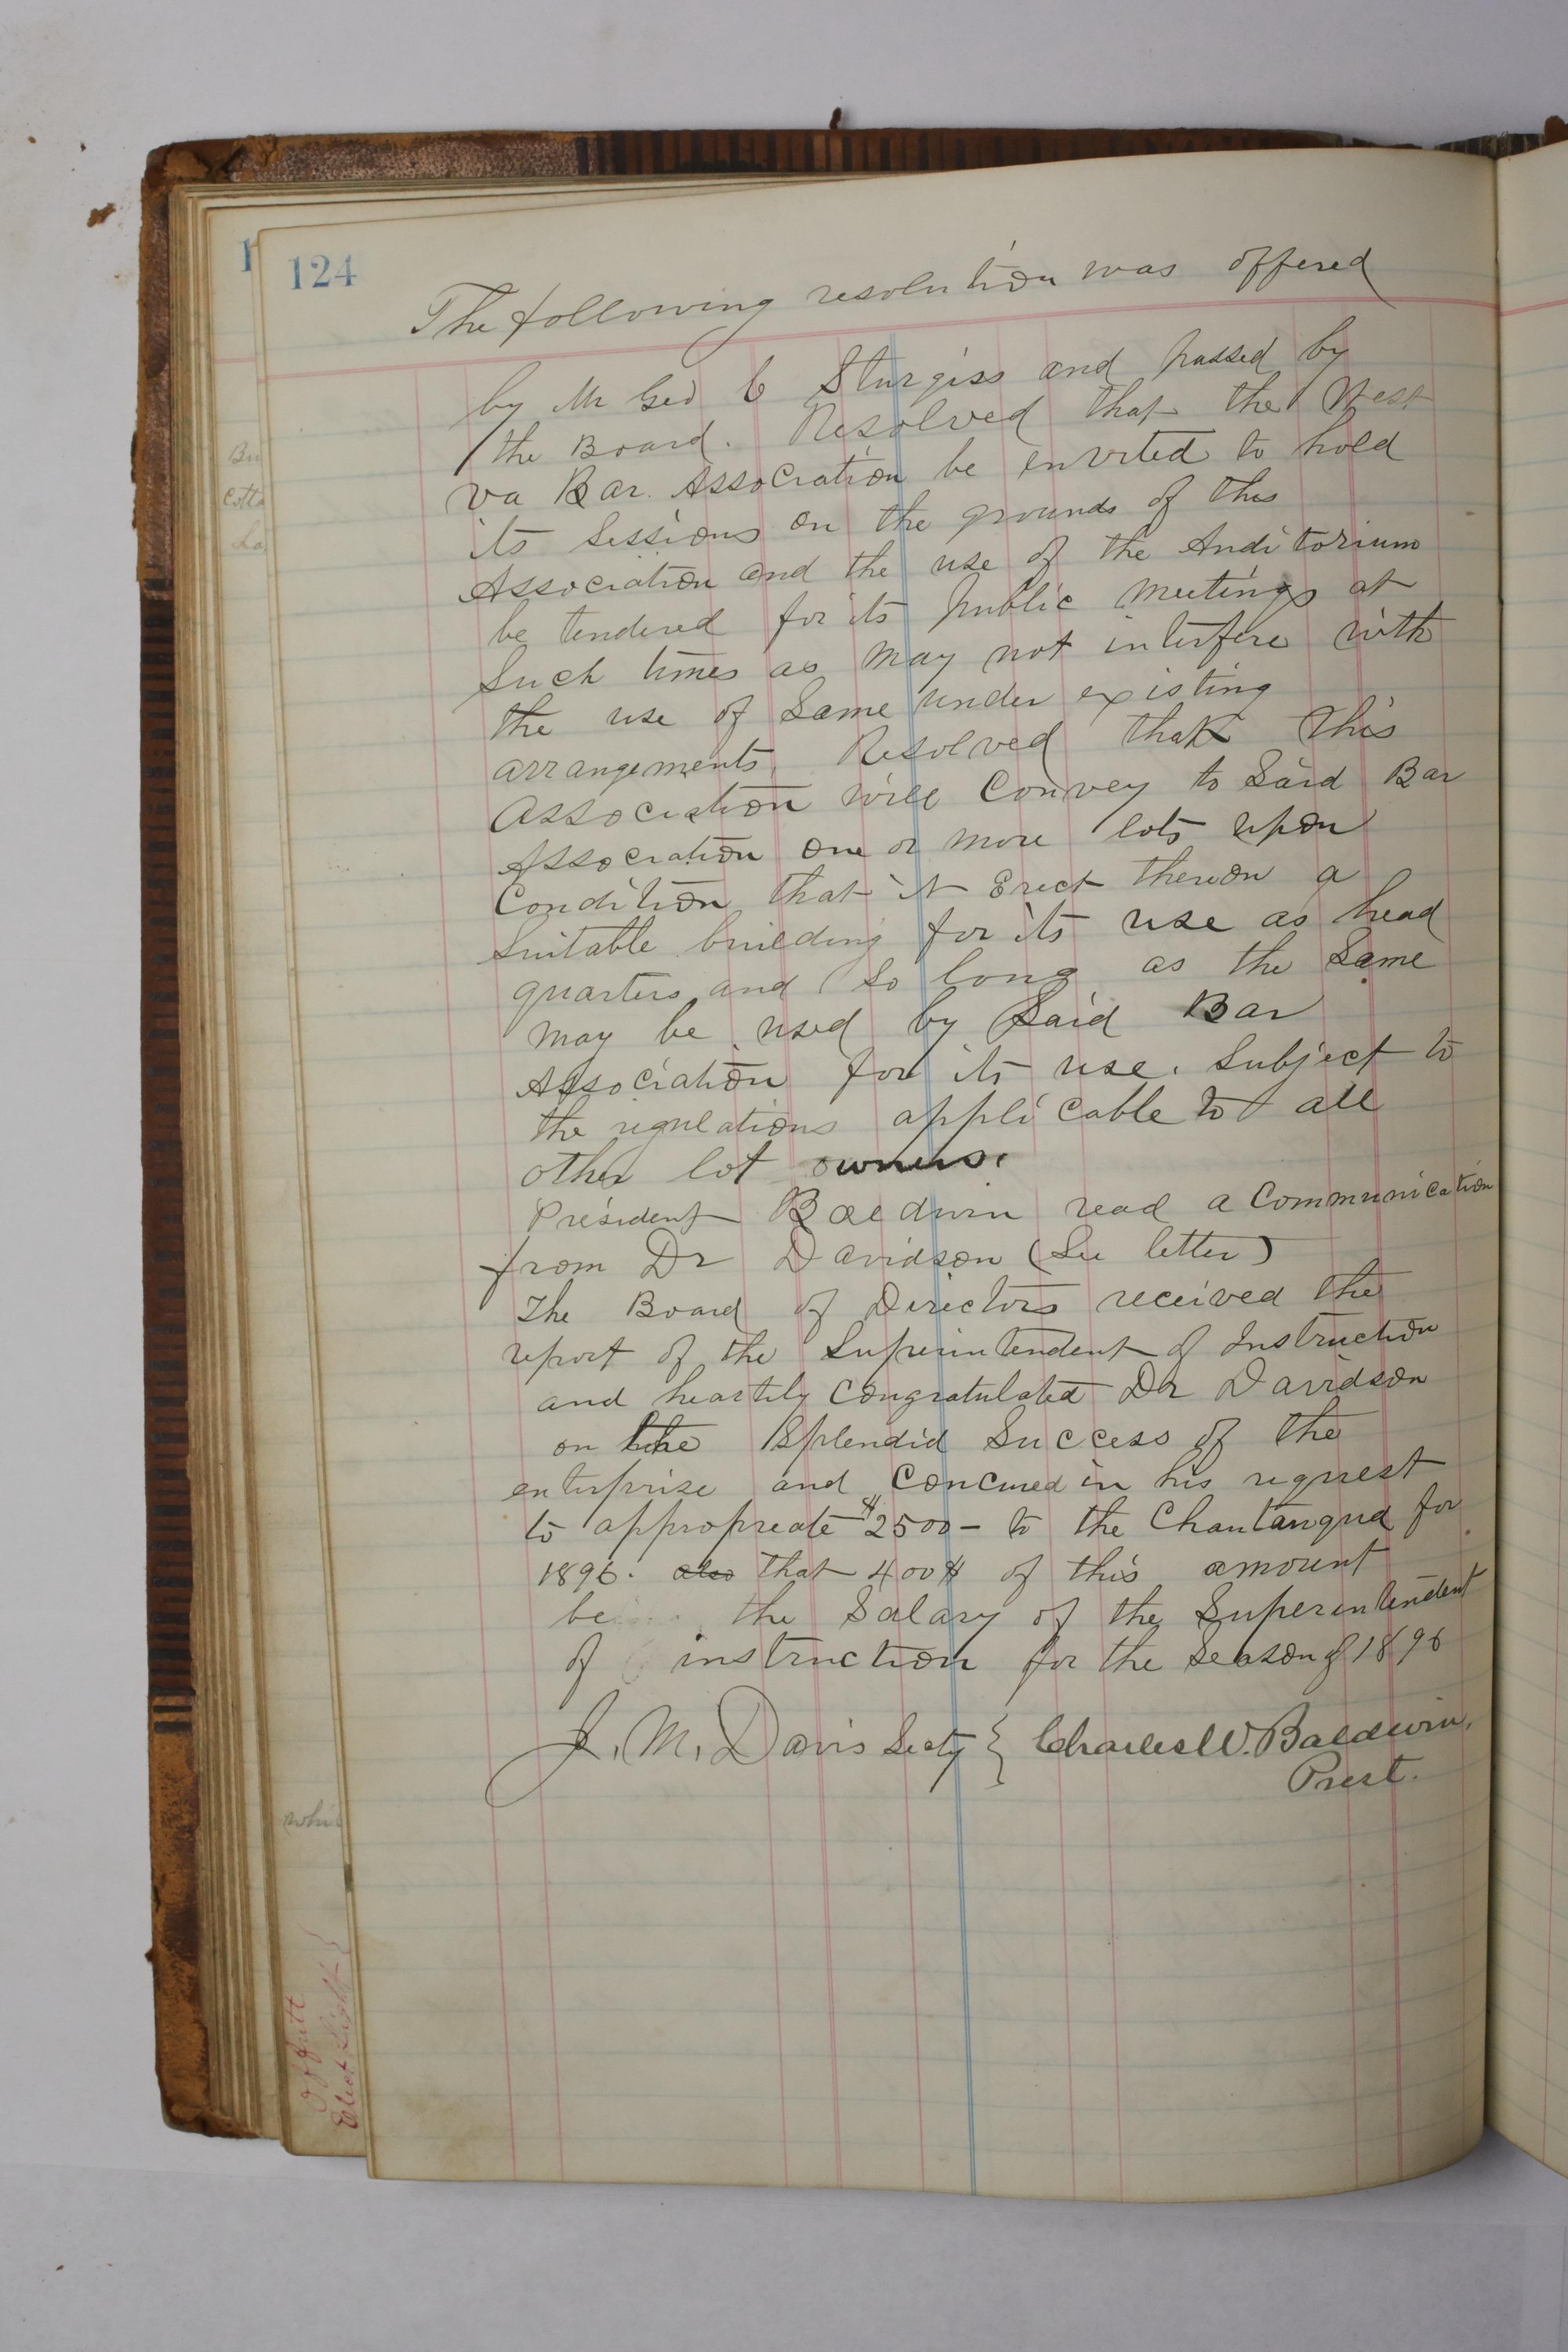 124
The following resolution was offered
by Mr Geo C Sturgiss and passed by
the Board. Resolved that the West
va Bar. Association be envited to hold
its Sessions on the grounds of this
Association and the use of the Auditorium
be tendered for its public meetings at
Such times as may not interfere with
the use of Same under existing
arrangements. Resolved that this
Association will Convey to Said Bar
Association one or more lots upon
Condition that it Erect thereon a
Suitable building for its use as head
quarters and So long as the Same
may be used by Said Bar
Association for its use. Subject to
the regulations applicable to all
other lot owners.
President Baldwin read a Communication
from Dr Davidson (See letter)
The Board of Directors received the
report of the Superintendent of Instruction
and heartily Congratulated Dr Davidson
on the Splendid Success of the
enterprise and Concured in his request
to appropreate $2500- to the Chautauqua for
1896. also that 400$ of this amount
be the Salary of the Superintendent
of instruction for the Season of 1896
J. M. Davis Secty } Charles W. Baldwin,
Prest.